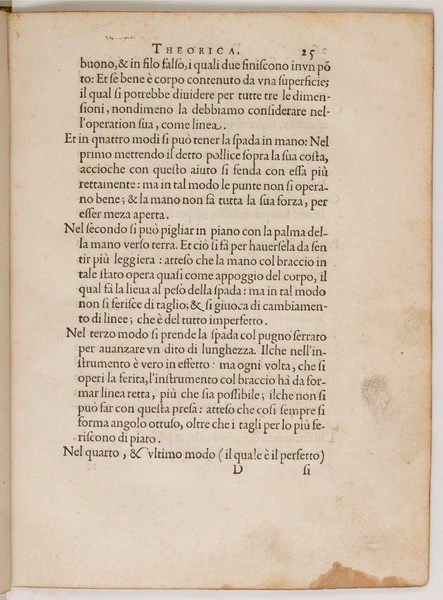 THEORICA. 25
buono, & in filo falso, i quali due finiscono invn põ
to: Et se bene è corpo contenuto da vna superficie;
il qual si potrebbe diuidere per tutte tre le dimen-
sioni, nondimeno la debbiamo considerare nel-
l'operation sua, come linea.
Et in quattro modi si può tener la spada in mano: Nel
primo mettendo il detto pollice sopra la sua costa,
accioche con questo aiuto si fenda con essa più
rettamente: ma in tal modo le punte non si opera-
no bene; & la mano non fà tutta la sua forza, per
esser meza aperta.
Nel secondo si può pigliar in piano con la palma del-
la mano verso terra. Et ciò si fà per hauersela da sen
tir più leggiera: atteso che la mano col braccio in
tale stato opera quasi come appoggio del corpo, il
qual fà la lieua al peso della spada: ma in tal modo
non si ferisce di taglio; & si giuoca di cambiamen-
to di linee; che è del tutto imperfetto.
Nel terzo modo si prende la spada col pugno serrato
per auanzare vn dito di lunghezza. Ilche nell'in-
strumento è vero in effetto: ma ogni volta, che si
operi la ferita, l'instrumento col braccio hà da for-
mar linea retta, più che sia possibile; ilche non si
può far con questa presa: atteso che così sempre si
forma angolo ottuso, oltre che i tagli per lo più fe-
riscono di piato.
Nel quarto, & vltimo modo (il quale è il perfetto)
D si